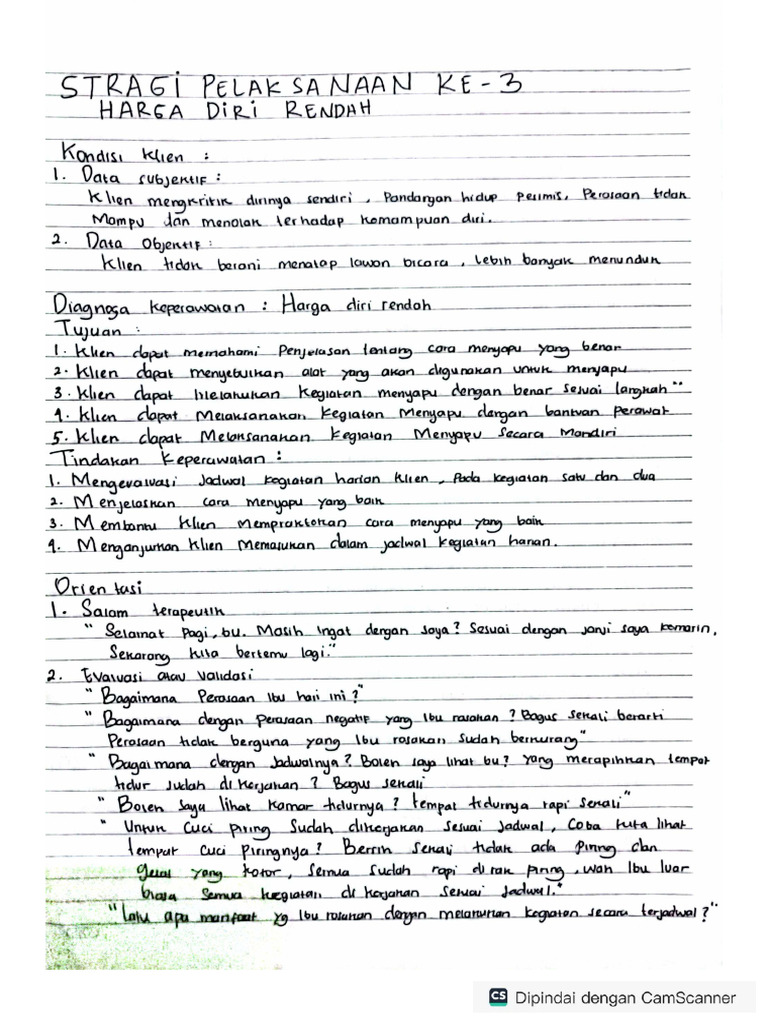 STRAGI PELAKSANAAN KE-3
HARGA DIRI RENDAH
Kondisi Klien :
1. Data subjektif :
Klien mengkritik dirinya sendiri, Pandangan hidup pesimis, Perasaan tidak
Mampu dan menolak terhadap kemampuan diri.
2. Data Objektif :
Klien tidak berani menatap lawan bicara, lebih banyak menunduk
Diagnosa keperawatan : Harga diri rendah
Tujuan :
1. Klien dapat memahami Penjelasan tentang cara menyapu yang benar
2. Klien dapat menyebutkan alat yang akan digunakan untuk menyapu
3. Klien dapat Melakukan kegiatan menyapu dengan benar sesuai langkah"
4. Klien dapat Melaksanakan kegiatan Menyapu dengan bantuan perawat
5. Klien dapat Melaksanakan kegiatan Menyapu secara Mandiri
Tindakan Keperawatan :
1. Mengevaluasi Jadwal kegiatan harian klien, Pada kegiatan satu dan dua
2. Menjelaskan cara menyapu yang baik
3. Membantu Klien Mempraktekan cara menyapu yang baik
4. Menganjurkan Klien Memasukan dalam jadwal kegiatan harian.
Orientasi
1. Salam terapeutik
" Selamat Pagi, bu. Masih Ingat dengan saya? Sesuai dengan janji saya kemarin,
Sekarang kita bertemu lagi."
2. Evaluasi atau Validasi
" Bagaimana Perasaan Ibu hari ini ?"
" Bagaimana dengan perasaan negatif yang Ibu rasakan ? Bagus sekali berarti
Perasaan tidak berguna yang Ibu rasakan sudah berkurang"
" Bagaimana dengan Jadwalnya ? Boleh saya lihat bu? Yang merapihkan tempat
tidur sudah di kerjakan ? Bagus sekali
" Boleh saya lihat kamar tidurnya ? tempat tidurnya rapi sekali"
" Untuk Cuci piring Sudah dikerjakan sesuai Jadwal, Coba kita lihat
tempat cuci piringnya ? Bersih sekali tidak ada Piring dan
gelas yang kotor, semua sudah rapi di rak piring, wah Ibu luar
biasa semua kegiatan di kerjakan sesuai Jadwal."
" Lalu apa manfaat yg Ibu rasakan dengan melakukan kegiatan secara terjadwal ?"
CS Dipindai dengan CamScanner